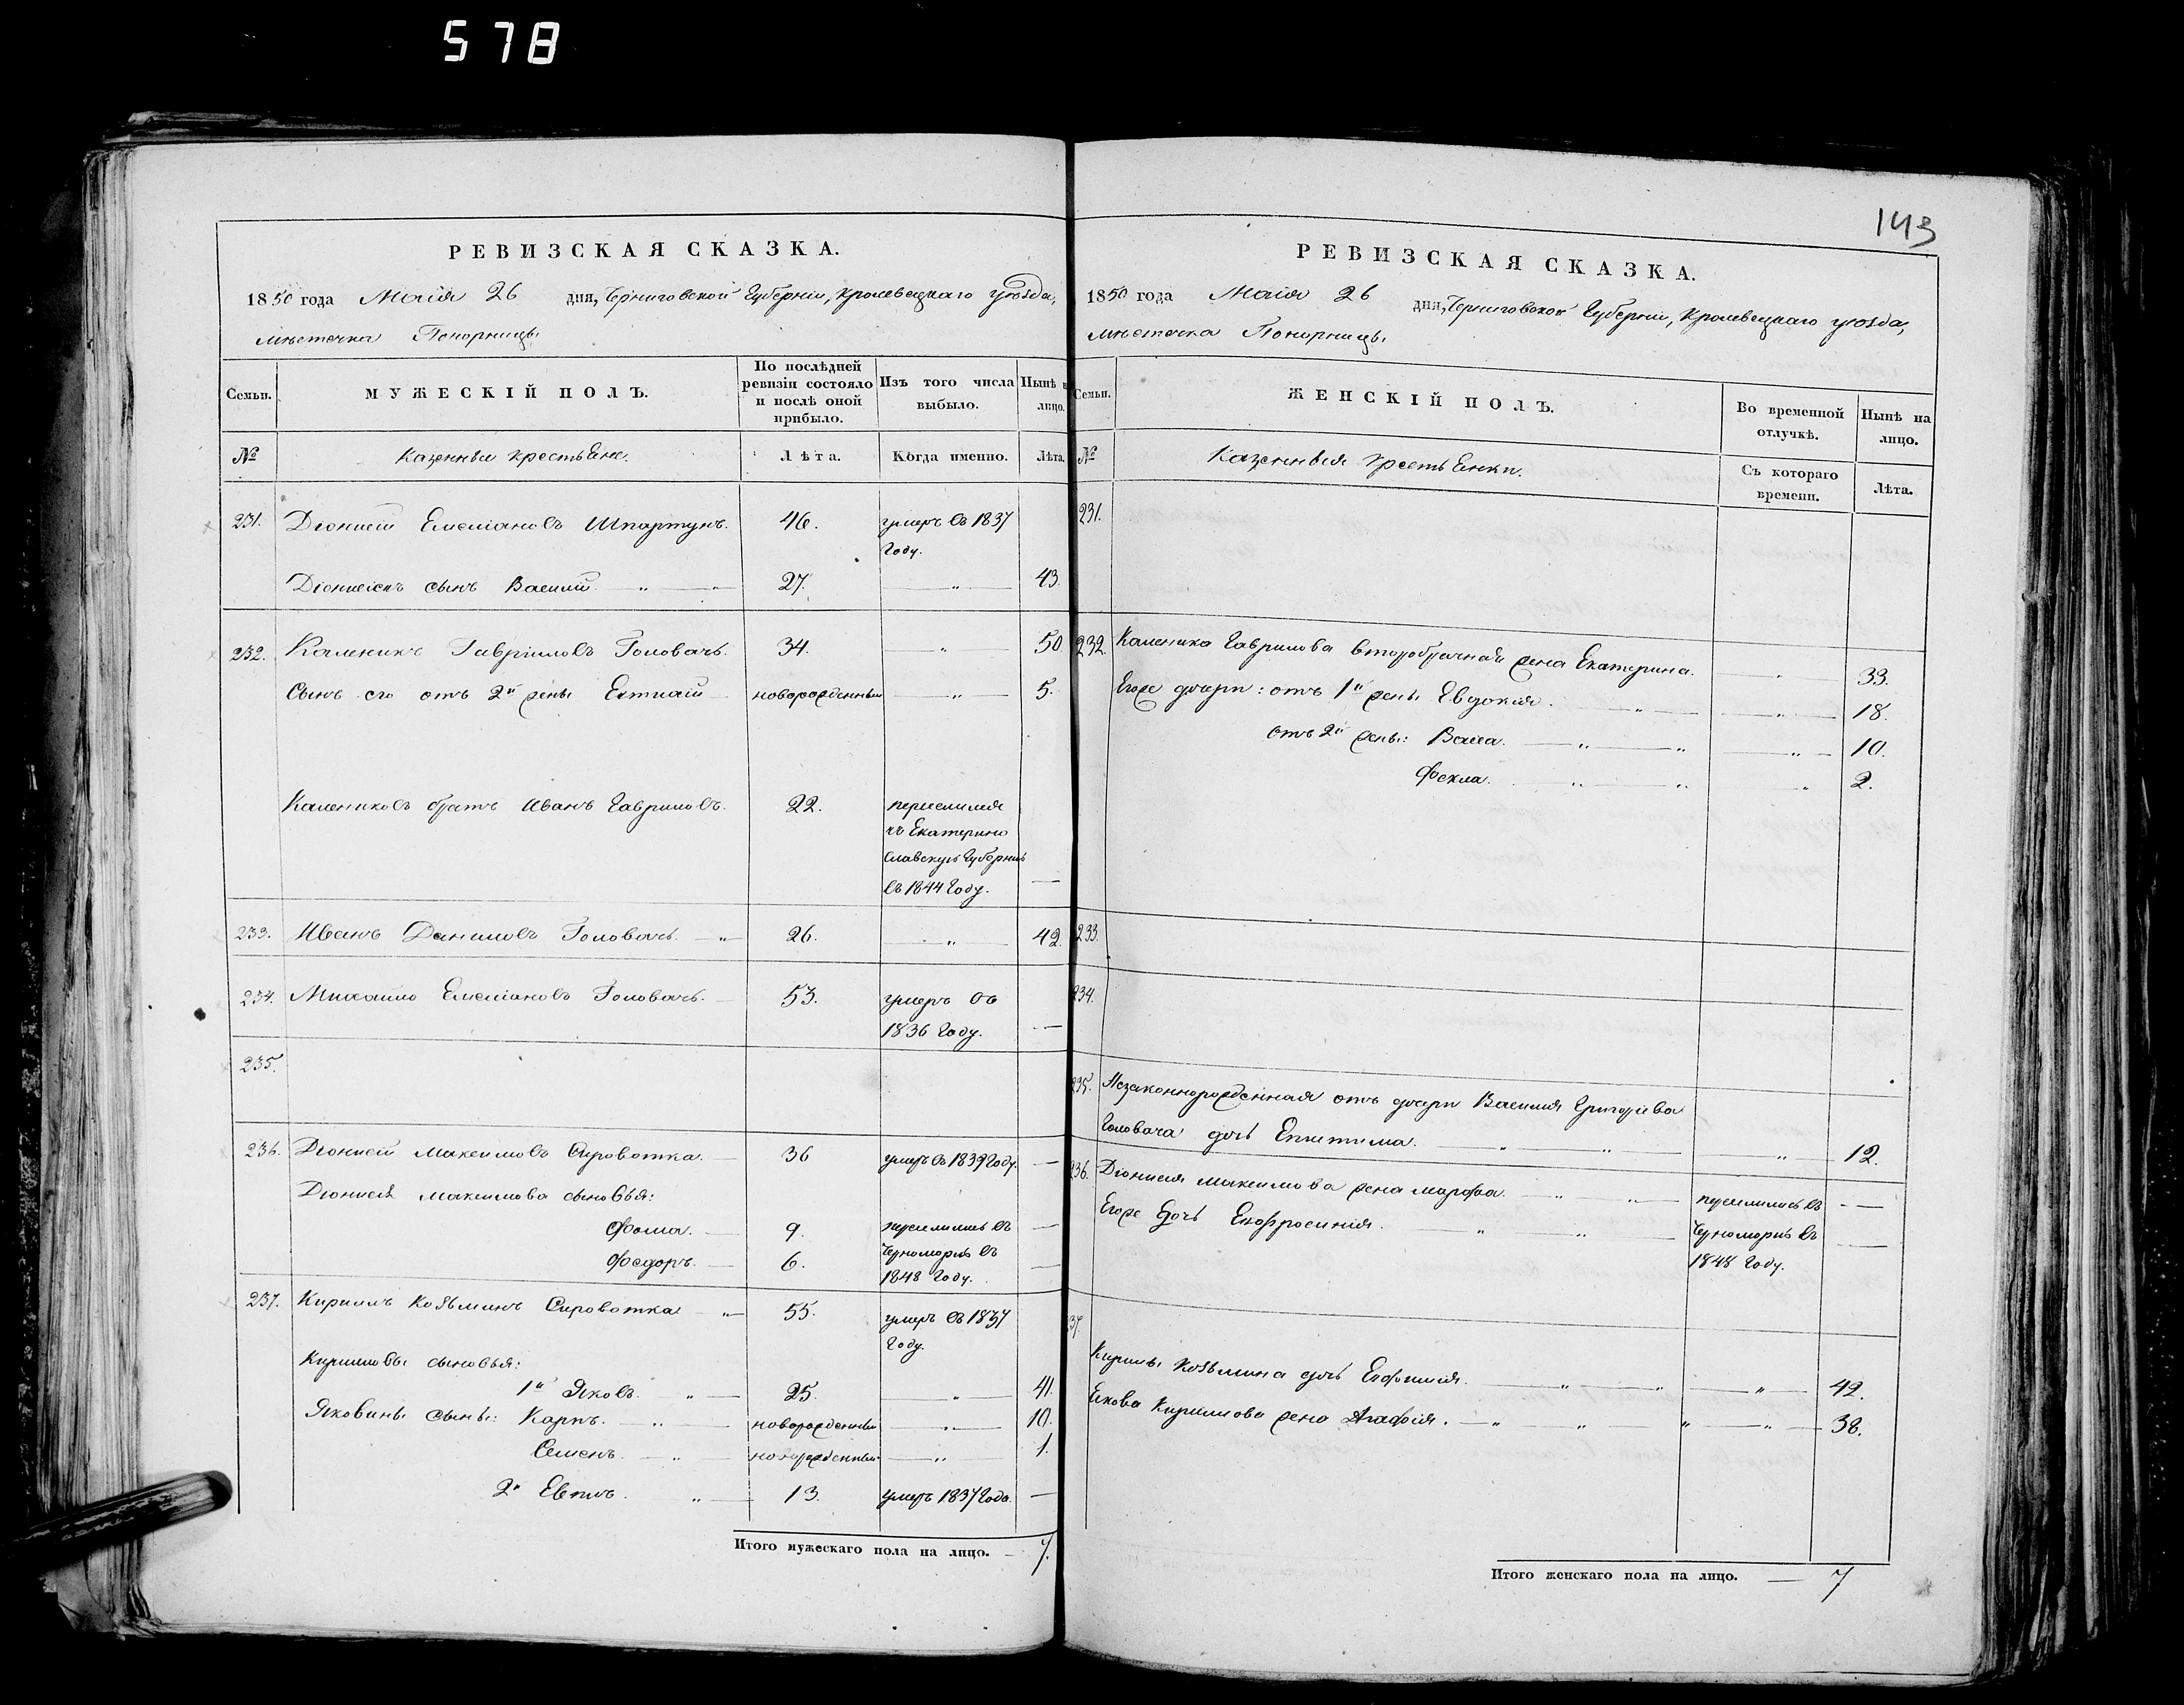 578
143
РЕВИЗСКАЯ СКАЗКА.
1850 года Маія 26 дня, Черниговской Губерніи, Кролевецкаго уѣзда,
мѣстечка Понорницы
Семьи.
МУЖЕСКІЙ ПОЛЪ.
По послѣдней ревизіи состояло и послѣ оной прибыло.
Изъ того числа выбыло.
Нынѣ на лицо.
№
Казенные крестьяне.
Лѣта.
Когда именно.
Лѣта.
231. Діонисій Емеліановъ Шпартунъ. 46. умеръ въ 1837
году.
Діонисіевъ сынъ Василій — " — " 27. — " — 43.
232. Каленикъ Гавріиловъ Головачъ. 34. — " — 50
Сынъ его отъ 2й жены новорожденный — " — 5.
Калениковъ братъ Иванъ Гавриловъ. 22. переселился
въ Екатерино
славскую Губернію
въ 1844 году. —
233. Иванъ Даниловъ Головачъ. — " — 26. — " — 42.
234. Михайло Емеліановъ Головачъ. — 53. умеръ въ
1836 году. —
235.
236. Діонисій Максимовъ Сыровотка. — 36 умеръ въ 1839 году. —
Діонисія Максимова сыновья:
Фома. — 9. переселились въ —
Федоръ. — 6. Черноморію въ
1848 году. —
237. Кирилъ Козьминъ Сыровотка " — 55. умеръ въ 1837
году.
Кириловы сыновья:
1й Яковъ. — " — 25. — " — 41.
Яковины сыны: Карпъ. — " — новорожденный — " — 10.
Семенъ. — " — новорожденный — " — 1.
2й 13. умеръ 1837 года. —
Итого мужескаго пола на лицо. — 7.
РЕВИЗСКАЯ СКАЗКА.
1850 года Маія 26 дня, Черниговской Губерніи, Кролевецкаго уѣзда,
мѣстечка Понорницы
Семьи.
ЖЕНСКІЙ ПОЛЪ.
Во временной отлучкѣ.
Нынѣ на лицо.
№
Казенныя крестьянки.
Съ котораго времени.
Лѣта.
231.
232. Каленика Гаврилова второбрачная жена Екатерина. — " — 33.
Егоже дочери: отъ 1й жены Евдокія. — " — " — 18.
отъ 2й жены: Васса. — " — " — " — 10.
Фекла. " " " 2.
233.
234.
235. Незаконнорожденная отъ дочери Василія Григорьева
Головача дочь Епистима. — " — " — " — 12.
236. Діонисія Максимова жена Марфа. — " — " — переселились въ — —
Егоже дочь Евфросинія. — " — " — Черноморію въ —
1848 году.
237.
Кирилы Козьмина дочь Евфимія. — " — " — " — 42.
Якова Кирилова жена Агафія. — " — " — " — " — 38.
Итого женскаго пола на лицо. — 7